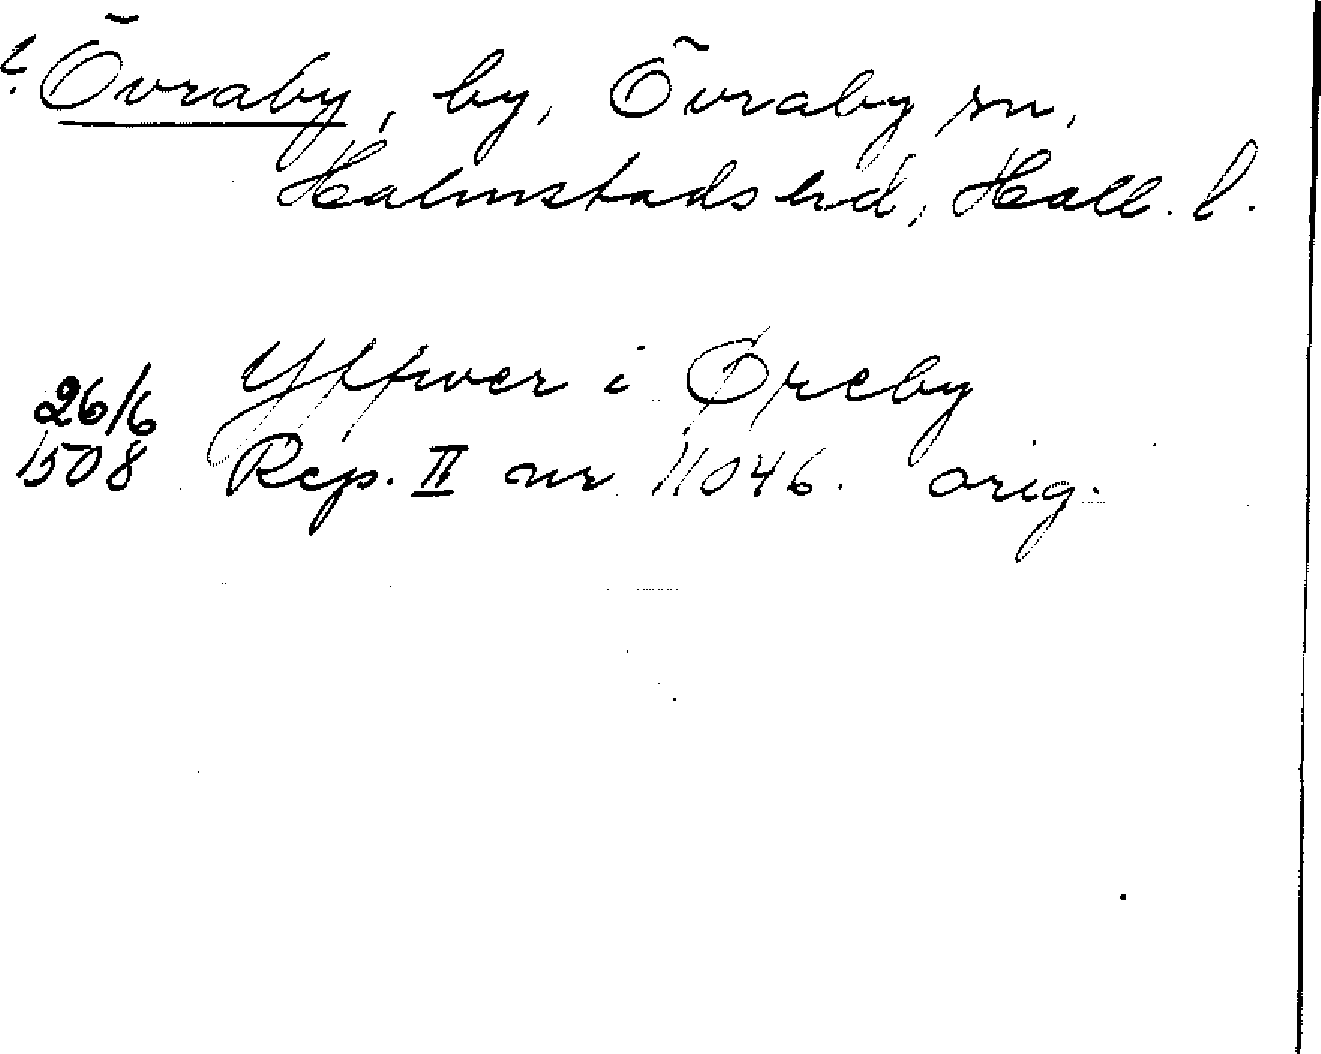 ? Övraby, by, Övraby sn,
Halmstads hd, Hall. l.
26/6 Yffwer i Øreby
1508 Rep. II nr 11046. orig.